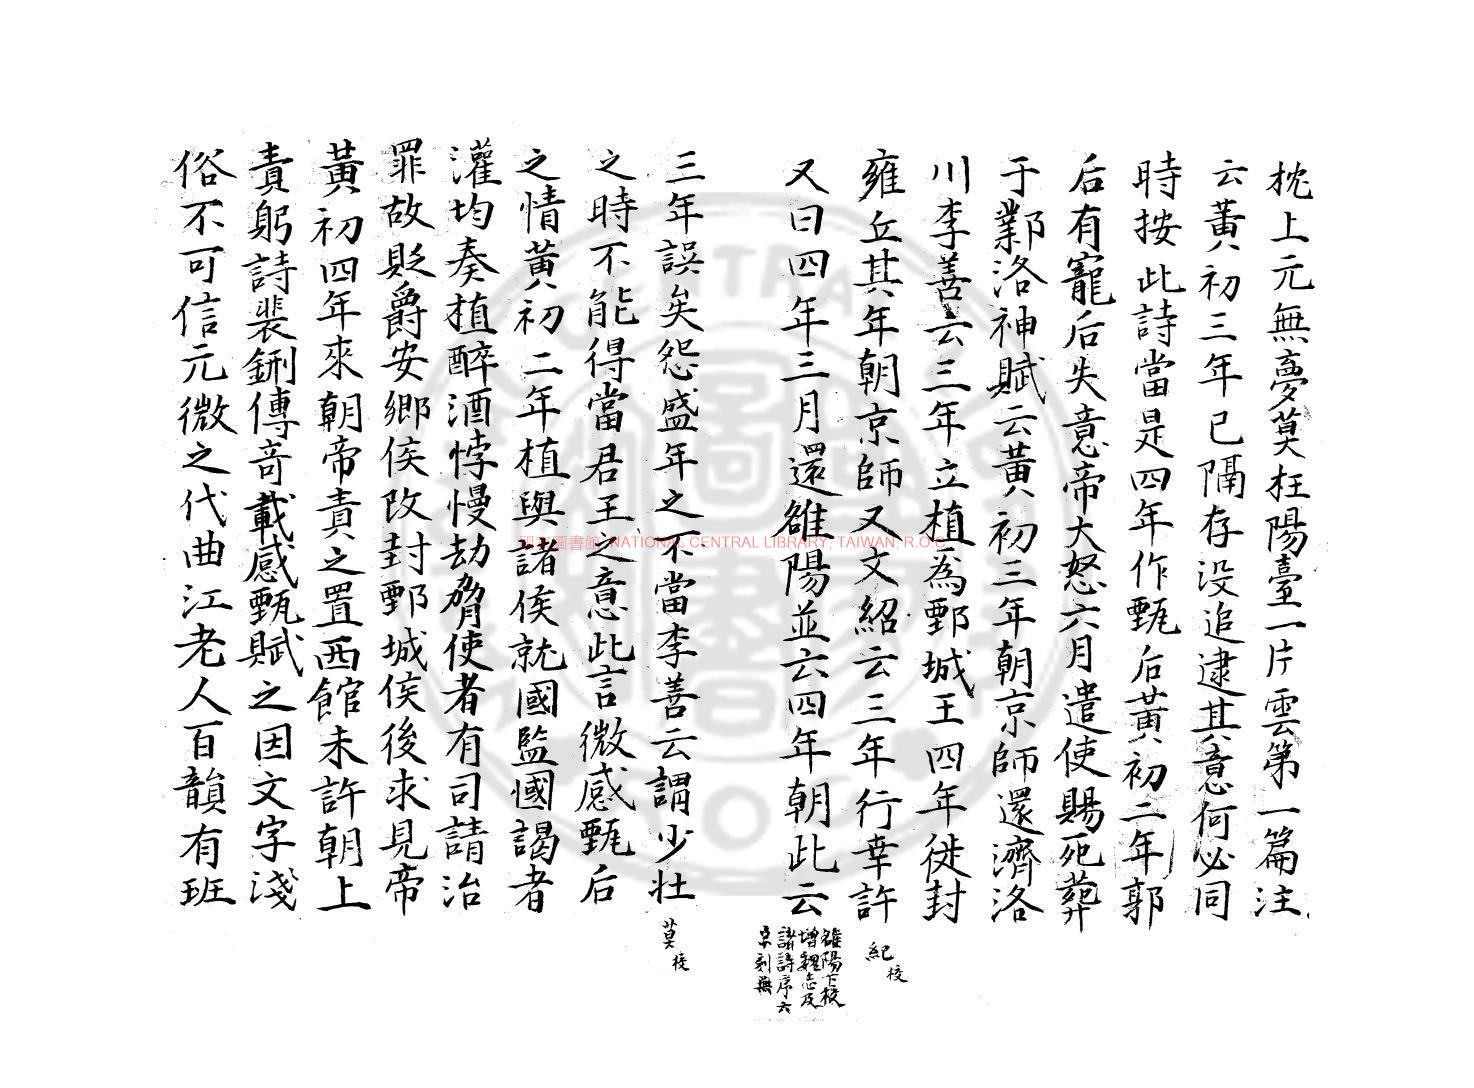 枕上元無夢莫枉陽臺一片雲第一篇注
云黃初三年已隔存没追逮其意何必同
時按此詩當是四年作甄后黃初二年郭
后有寵后失意帝大怒六月遣使賜死葬
于鄴洛神賦云黃初三年朝京師還濟洛
川李善云三年立植為鄄城王四年徙封
雍丘其年朝京師又文紹云三年行幸許
紀校
又曰四年三月還雒陽並云四年朝此云
雒陽下校
增魏志及
詩序六
宋刻無
三年誤矣怨盛年之不當李善云謂少壯
莫校
之時不能得當君王之意此言微感甄后
之情黃初二年植與諸侯就國監國謁者
灌均奏植醉酒悖慢劫脅使者有司請治
罪故貶爵安鄉侯改封鄄城侯後求見帝
黃初四年來朝帝責之置西館未許朝上
責躬詩裴鉶傳奇載感甄賦之因文字淺
俗不可信元微之代曲江老人百韻有班
國家圖書館 NATIONAL CENTRAL LIBRARY, TAIWAN, R.O.C